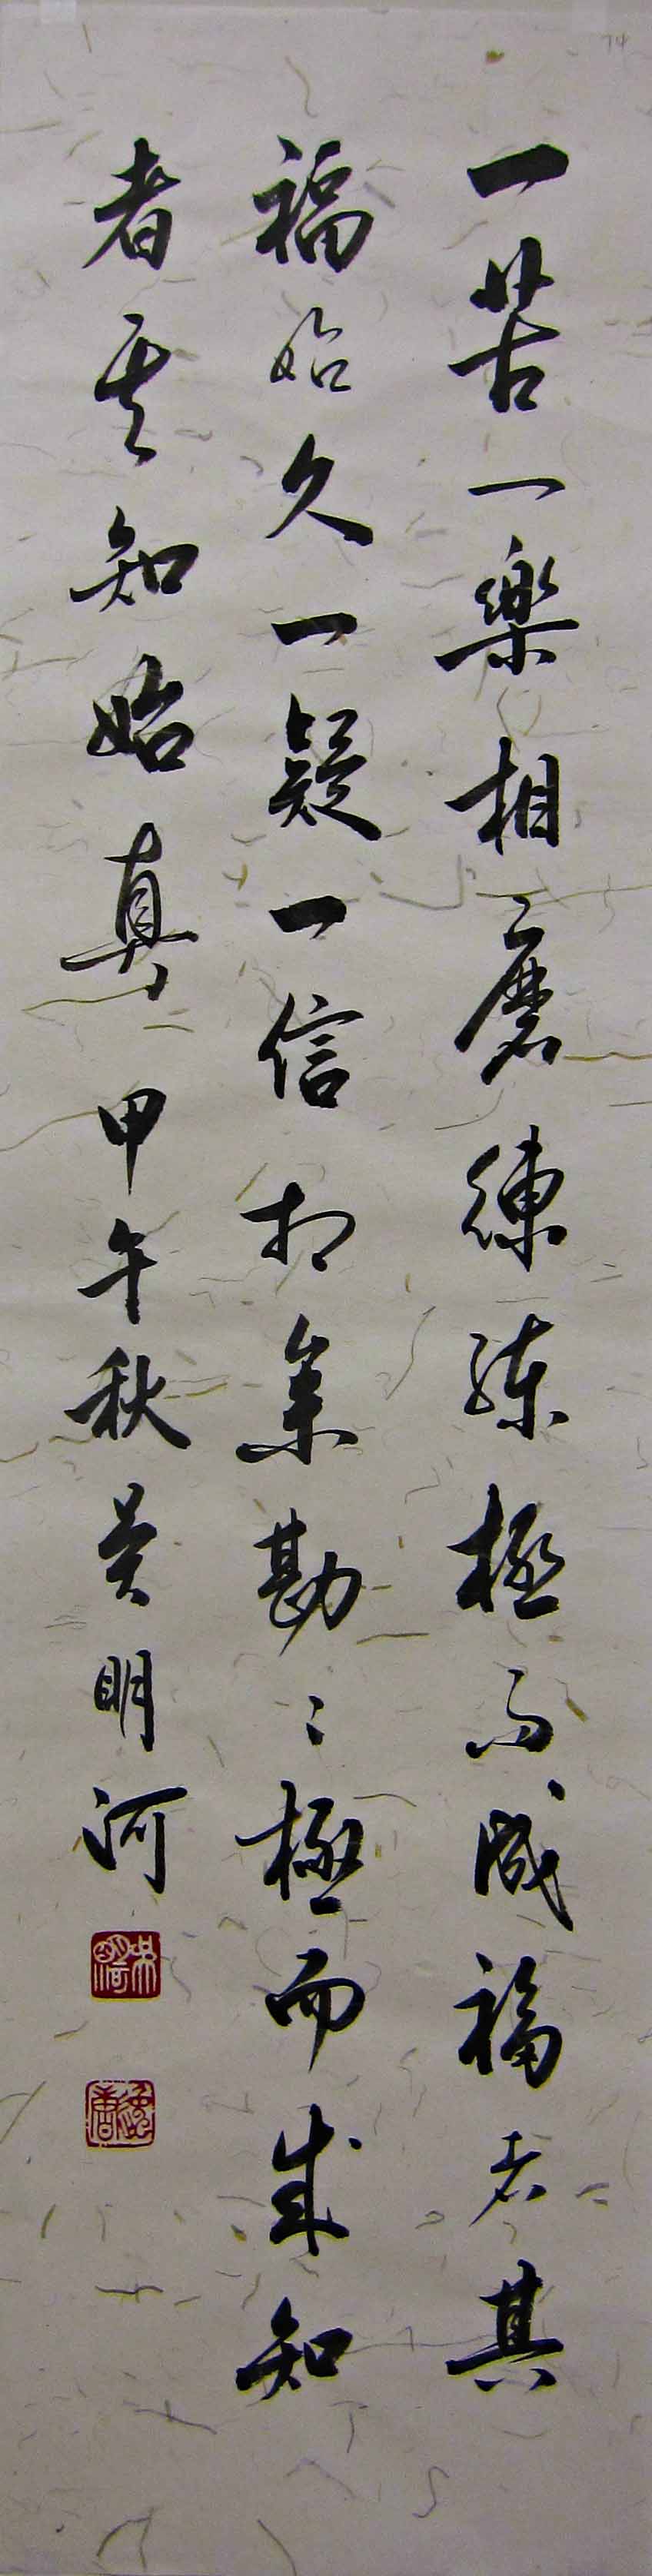 一苦一樂相磨練練極而成福者其
福始久一疑一信相參勘々極而成知
者其知始真 甲午秋 吳明河
74